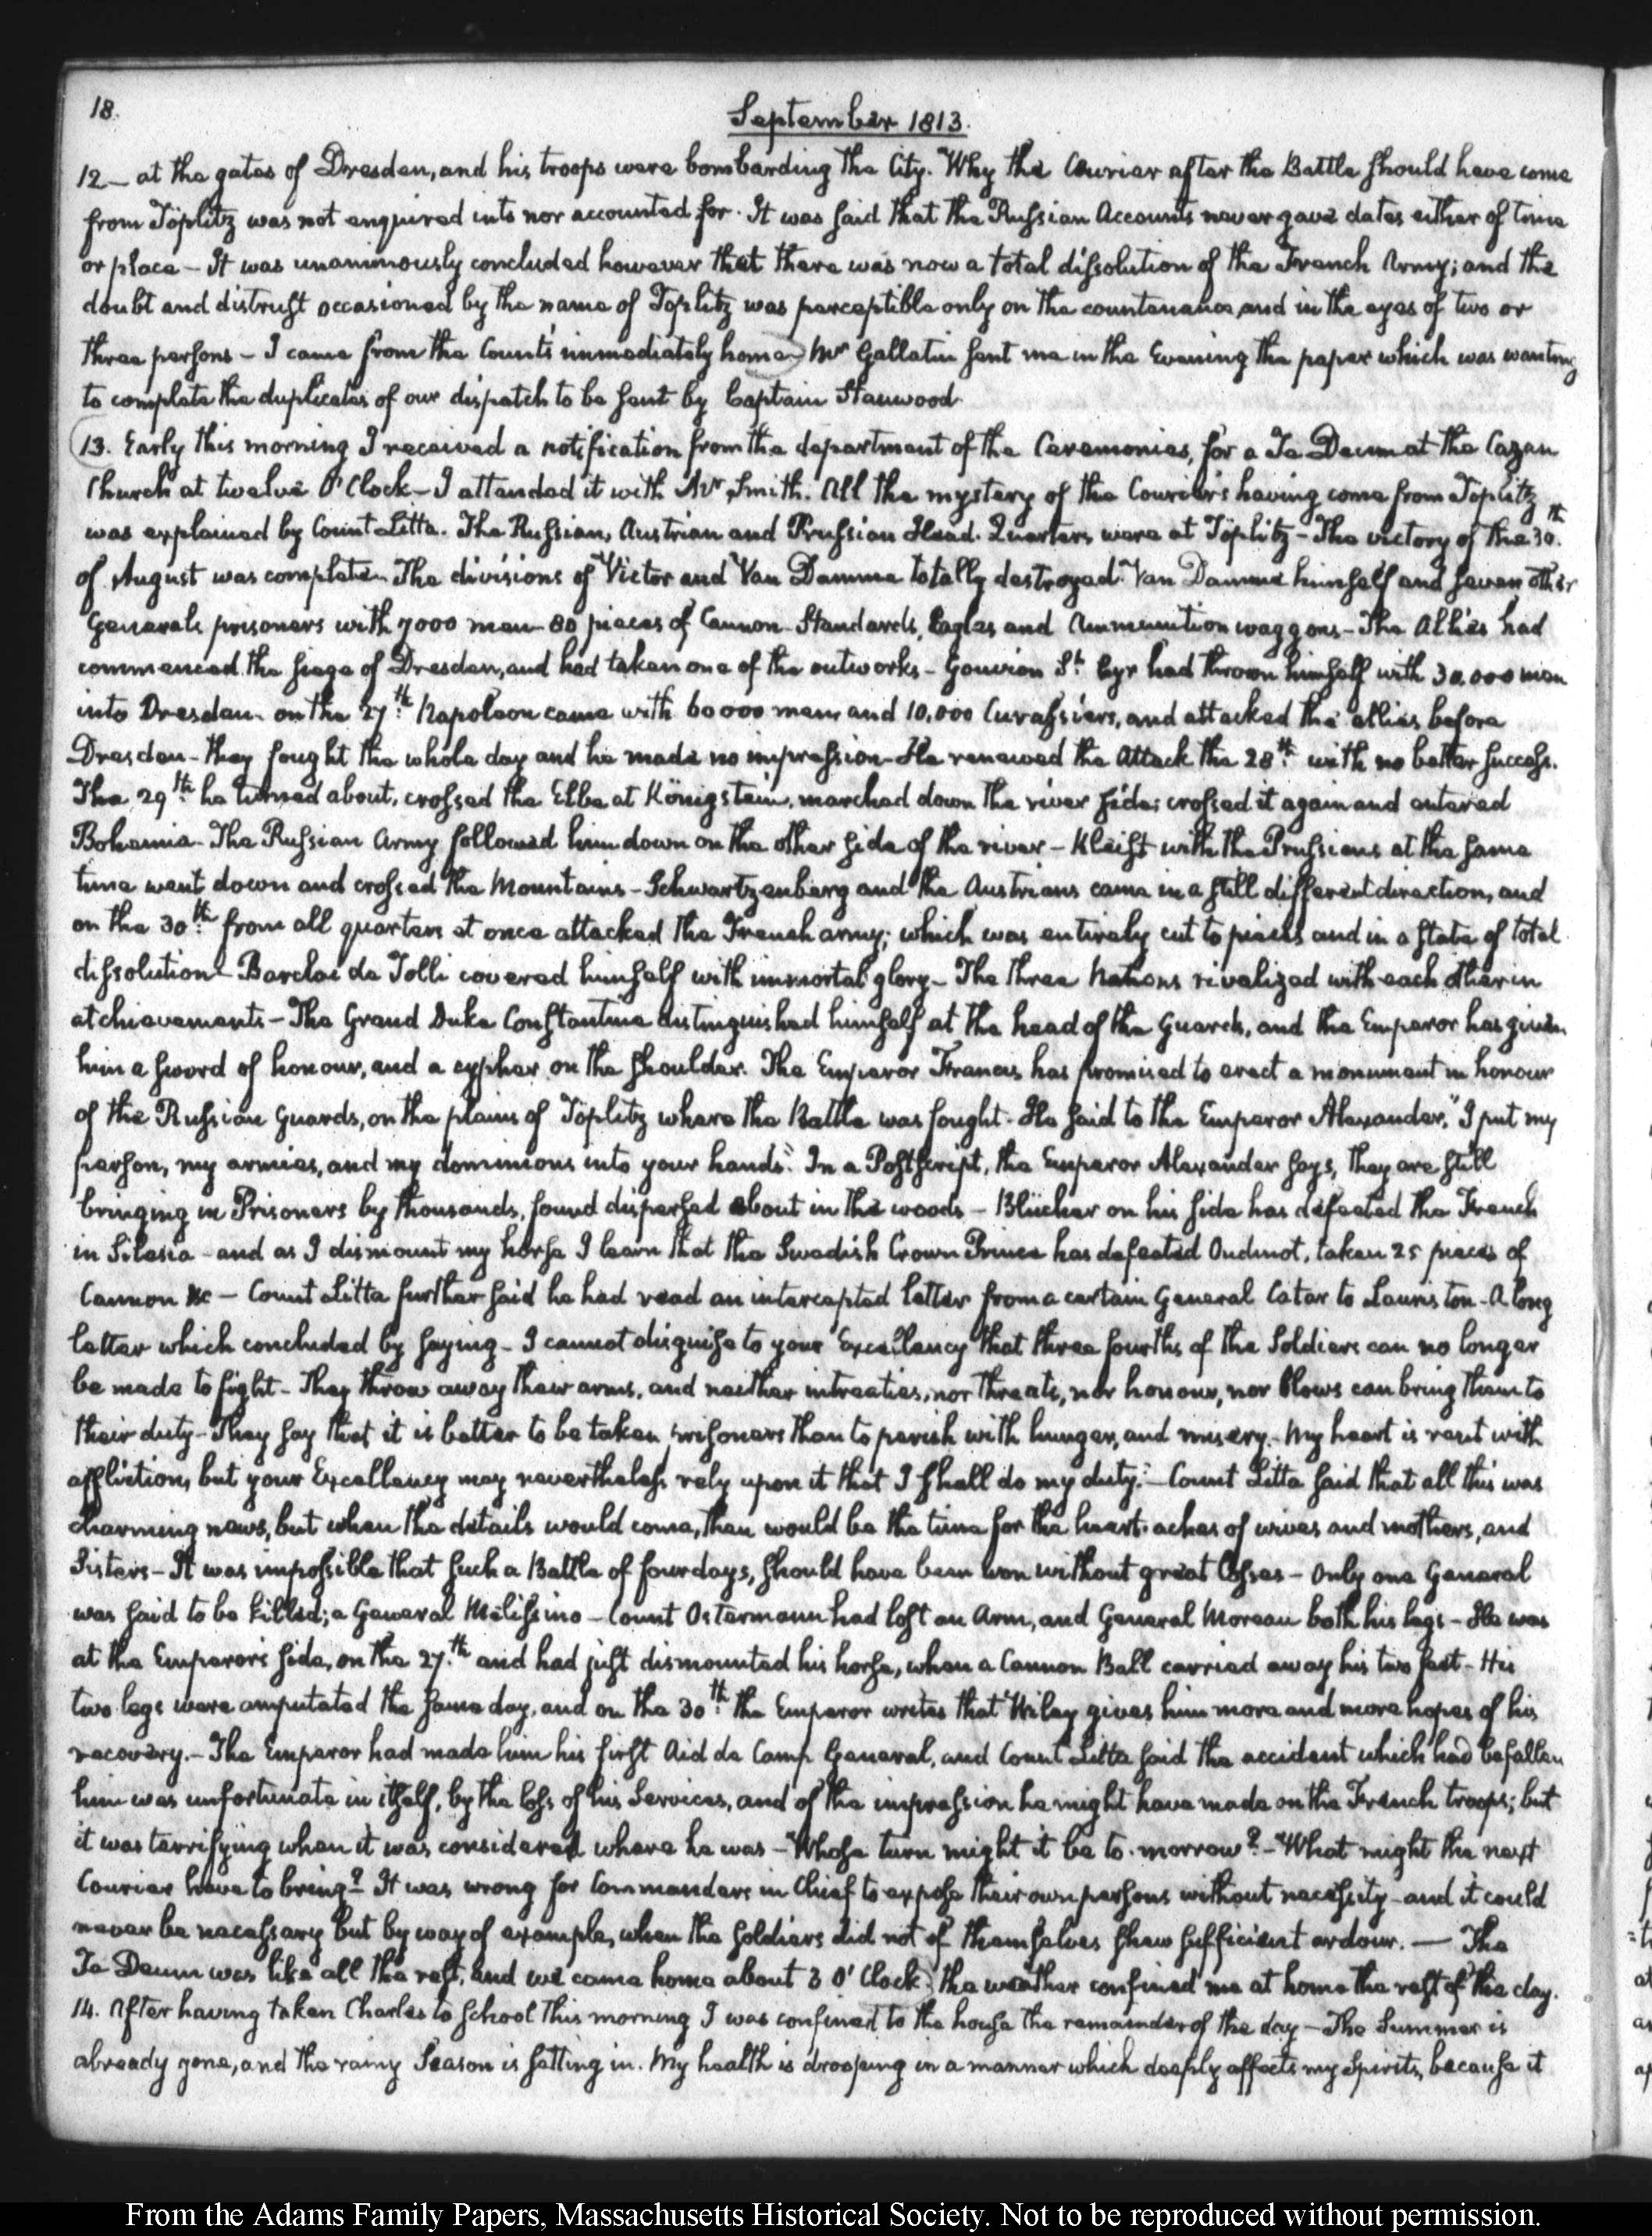 18.
September 1813.
12 — at the gates of Dresden, and his troops were bombarding the City. Why the Courier after the Battle should have come
from Töplitz was not enquired into nor accounted for. It was said that the Russian Accounts never gave dates either of time
or place — It was unanimously concluded however that there was now a total dissolution of the French Army; and the
doubt and distrust occasioned by the name of Töplitz was perceptible only on the countenance and in the eyes of two or
three persons — I came from the Count's immediately home — Mr Gallatin sent me in the Evening the paper which was wanting
to complete the duplicates of our dispatch to be sent by Captain Stanwood.
13. Early this morning I received a notification from the department of the Ceremonies, for a Te Deum at the Cazan
Church at twelve O'Clock — I attended it with Mr Smith. All the mystery of the Courier's having come from Töplitz
was explained by Count Litta. The Russian, Austrian and Prussian Head-Quarters were at Töplitz — The victory of the 30th
of August was complete — The divisions of Victor and Van Damme totally destroyed. Van Damme himself and seven other
Generals prisoners with 7000 men — 80 pieces of Cannon — Standards, Eagles and Ammunition waggons — The Allies had
commenced the siege of Dresden, and had taken one of the outworks — Gouvion St. Cyr had thrown himself with 30.000 men
into Dresden. on the 27th Napoleon came with 60000 men and 10,000 Cuirassiers, and attacked the allies before
Dresden — they fought the whole day and he made no impression — He renewed the Attack the 28th with no better success.
The 29th he turned about, crossed the Elbe at Königstein, marched down the river side; crossed it again and entered
Bohemia — The Russian Army followed him down on the other side of the river — Kleist with the Prussians at the same
time went down and crossed the Mountains — Schwartzenberg and the Austrians came in a still different direction, and
on the 30th from all quarters at once attacked the French army; which was entirely cut to pieces and in a state of total
dissolution — Barclai de Tolli covered himself with immortal glory — The three Nations rivalized with each other in
atchievements — The Grand Duke Constantine distinguished himself at the head of the Guards, and the Emperor has given
him a sword of honour, and a cypher on the shoulder. The Emperor Francis has promised to erect a monument in honour
of the Russian Guards, on the plains of Töplitz where the Battle was fought. He said to the Emperor Alexander, "I put my
person, my armies, and my dominions into your hands." In a Postscript, the Emperor Alexander says, they are still
bringing in Prisoners by thousands, found dispersed about in the woods — Blücher on his side has defeated the French
in Silesia — and as I dismount my horse I learn that the Swedish Crown Prince has defeated Oudinot, taken 25 pieces of
Cannon &c — Count Litta further said he had read an intercepted letter from a certain General Catar to Lauriston — A long
letter which concluded by saying — I cannot disguise to your Excellency that three fourths of the Soldiers can no longer
be made to fight — They throw away their arms, and neither intreaties, nor threats, nor honour, nor blows can bring them to
their duty — They say that it is better to be taken prisoners than to perish with hunger, and misery. — My heart is rent with
affliction, but your Excellency may nevertheless rely upon it that I shall do my duty." — Count Litta said that all this was
charming news, but when the details would come, then would be the time for the heart-aches of wives and mothers, and
Sisters — It was impossible that such a Battle of four days, should have been won without great losses — Only one General
was said to be killed; a General Melissino — Count Ostermann had lost an Arm, and General Moreau both his legs — He was
at the Emperor's side, on the 27th and had just dismounted his horse, when a Cannon Ball carried away his two feet — His
two legs were amputated the same day, and on the 30th the Emperor writes that Wiley gives him more and more hopes of his
recovery. — The Emperor had made him his first Aid de Camp General, and Count Litta said the accident which had befallen
him was unfortunate in itself, by the loss of his Services, and of the impression he might have made on the French troops; but
it was terrifying when it was considered where he was — Whose turn might it be to-morrow? — What might the next
Courier have to bring? It was wrong for Commanders in Chief to expose their own persons without necessity — and it could
never be necessary but by way of example, when the soldiers did not of themselves shew sufficient ardour. — The
Te Deum was like all the rest, and we came home about 3 O'Clock; the weather confined me at home the rest of the day.
14. After having taken Charles to School this morning I was confined to the house the remainder of the day — The Summer is
already gone, and the rainy Season is setting in. My health is drooping in a manner which deeply affects my Spirits, because it
From the Adams Family Papers, Massachusetts Historical Society. Not to be reproduced without permission.